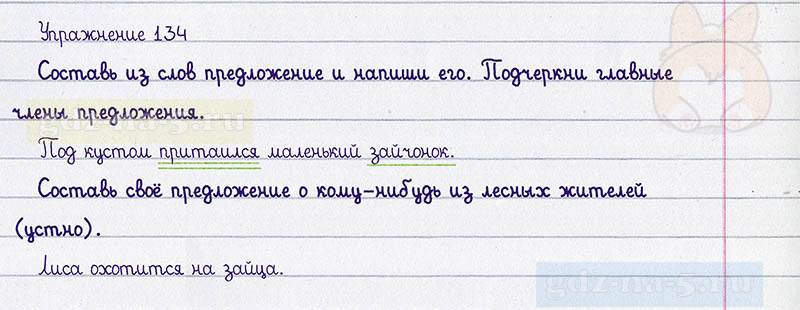 Упражнение 134
Составь из слов предложение и напиши его. Подчеркни главные
члены предложения.
gdz-na-5.ru
Под кустом притаился маленький зайчонок.
Составь своё предложение о кому-нибудь из лесных жителей
(устно).
Лиса охотится на зайца.
gdz-na-5.ru